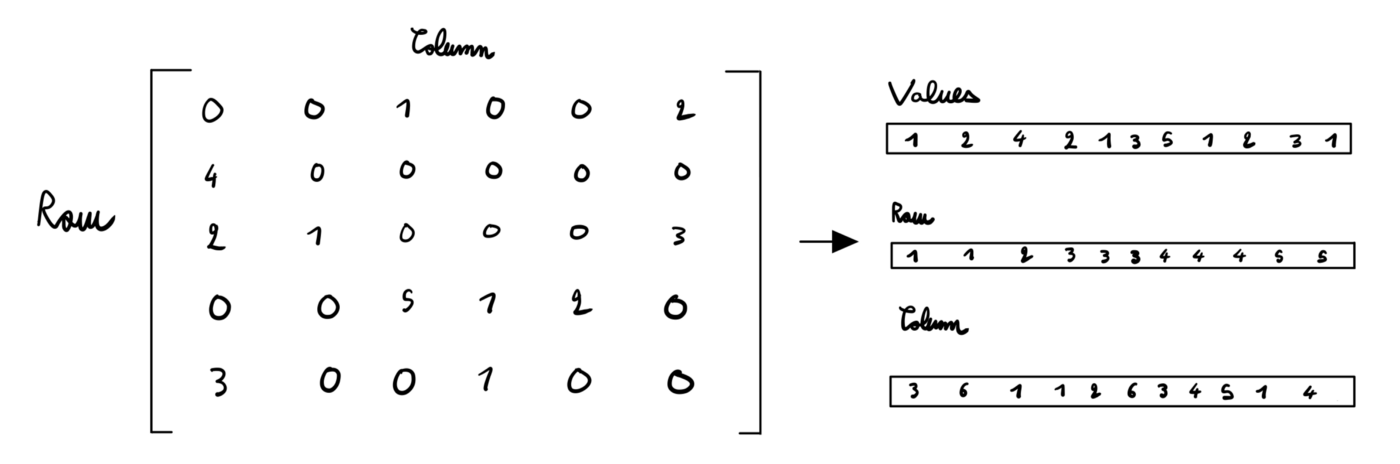 Column
0 0 1 0 0 2
4 0 0 0 0 0
Row
2 1 0 0 0 3
0 0 5 1 2 0
3 0 0 1 0 0
Values
1 2 4 2 1 3 5 1 2 3 1
Row
1 1 2 3 3 3 4 4 4 5 5
Column
3 6 1 1 2 6 3 4 5 1 4